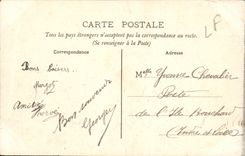 LP
CARTE POSTALE
Tous les pays étrangers n'acceptent pas la correspondance au recto.
(Se renseigner à la Poste)
Correspondance
Adresse
Bons baisers
Margot
Amitiés
Hervé
Bon souvenir
Georges
Mlle Yvonne Chevalier
Poste
de l'Ile Bouchard
(Indre et Loire)